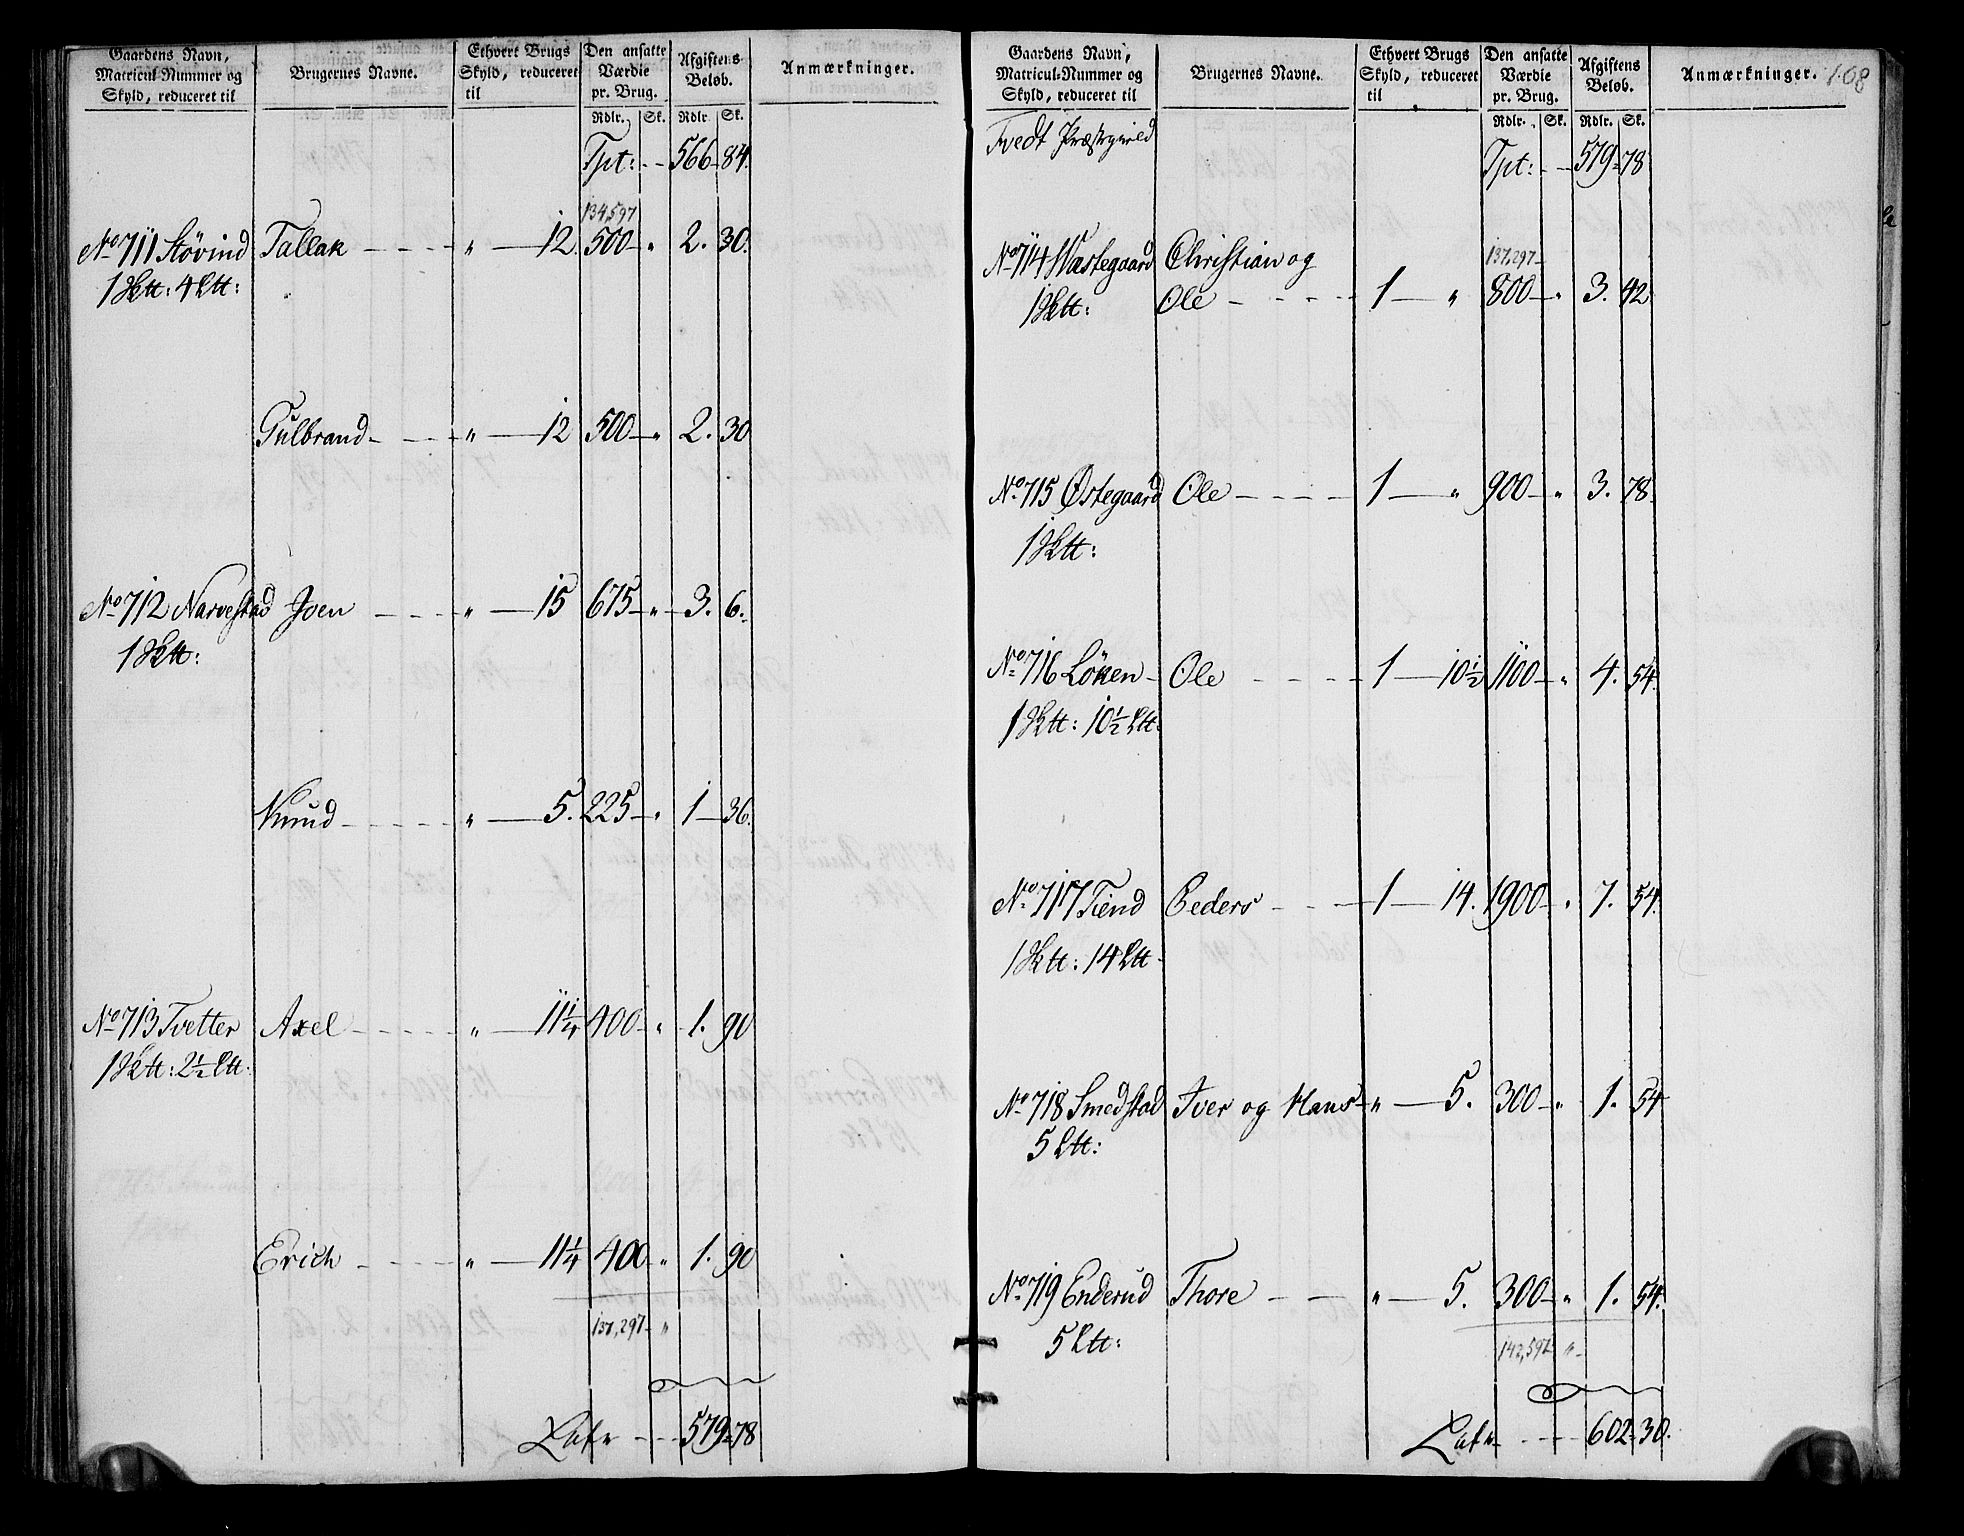 Gaardens Navn, Matricul-Nummer og Skyld, reduceret til | Brugernes Navne. | Ethvert Brugs Skyld, reduceret til | Den ansatte Værdie pr. Brug. | Afgiftens Beløb. | Anmærkninger.
Rdlr. Sk. Rdlr Sk.
Tpt: - - 566 - 84.
134,597
No 711 Støvind Tallak - - - - " - 12. 500 - " 2. 30.
1 Sktt: 4 Ltt:
Gulbrand - - - - " - 12 500 - " 2. 30
No 712 Narvestad Joen - - - " - 15 675 - " 3. 6.
1 Sktt:
Knud - - - - - " - 5. 225 - " 1 - 36.
No 713 Tvetter Axel - - - - - " - 11¼ 400 - " 1. 90
1 Sktt: 2½ Ltt:
Erich - - - - " - 11¼ 400 - " 1. 90
137,297 - "
Lat - - - 579 = 78
Gaardens Navn, Matricul-Nummer og Skyld, reduceret til | Brugernes Navne. | Ethvert Brugs Skyld, reduceret til | Den ansatte Værdie pr. Brug. | Afgiftens Beløb. | Anmærkninger. 108
Rdlr. Sk. Rdlr. Sk.
Tvedt Præstegield
Tpt: - - 579 = 78
No 714 Wastegaard Christian og 137,297 -
1 Sktt: Ole - - - - 1 - " 800 - " 3. 42
No 715 Østegaard Ole - - - - 1 - " 900 - " 3. 78.
1 Sktt:
No 716 Löken - Ole - - - - 1 - 10½ 1100 - " 4. 54.
1 Sktt: 10½ Ltt:
No 717 Tiend Peders - - - 1 - 14. 1900 - " 7. 54.
1 Sktt: 14 Ltt -
No 718 Smedstad Iver og Hans - " - 5. 300 - " 1. 54
5 Ltt:
No 719 Enderud Thore - - - " - 5. 300 - " 1. 54.
5 Ltt:
142,597 - " -
Lat - - - 602 = 30.